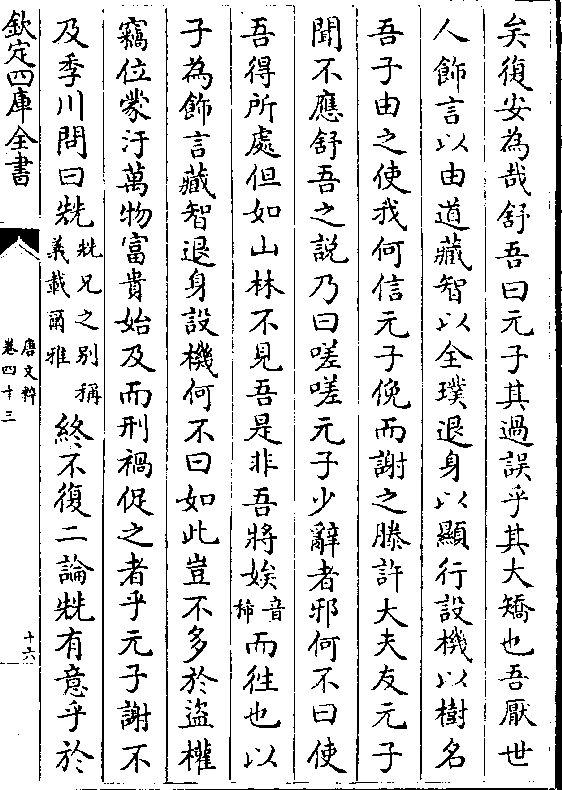 矣復安為哉舒吾曰元子其過誤乎其大矯也吾厭世
人飾言以由道藏智以全璞退身以顯行設機以樹名
吾子由之使我何信元子俛而謝之滕許大夫友元子
聞不應舒吾之説乃曰嗟嗟元子少辭者邪何不曰使
吾得所處但如山林不見吾是非吾將娭音㭒而往也以
子為飾言藏智退身設機何不曰如此豈不多於盜權
竊位蒙汙萬物富貴始及而刑禍促之者乎元子謝不
及季川問曰兟兟兄之别稱義載爾雅終不復二論兟有意乎於
欽定四庫全書
唐文粹
卷四十三
十六